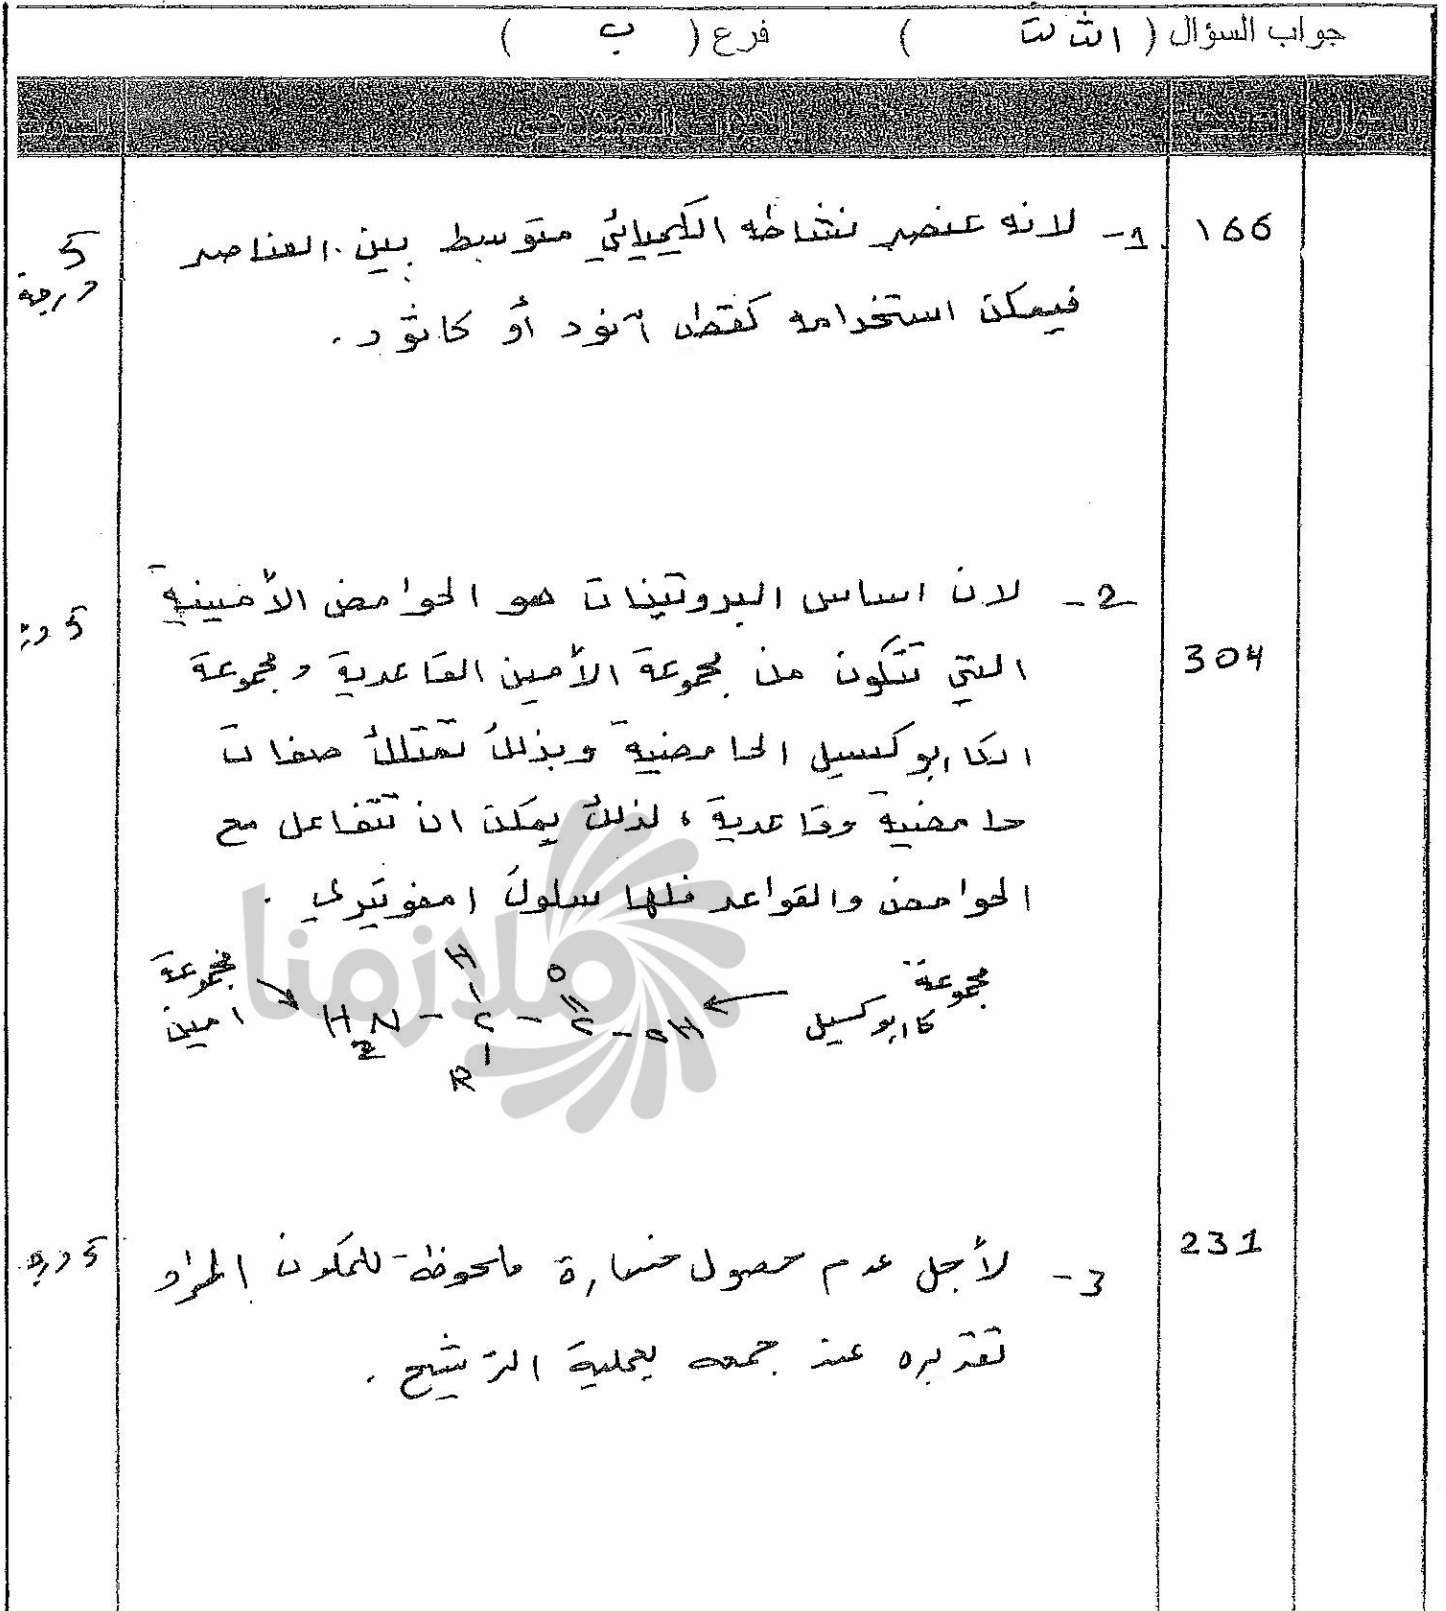 جواب السؤال ( الثالث ) فرع ( ب )
166
1- لانه عنصر نشاطه الكيميائي متوسط بين العناصر
5 درجة
فيمكن استخدامه كقطب آنود أو كاثود .
2- لان اساس البروتينات هو الحوامض الأمينية
5 در
304
التي تتكون من مجموعة الأمين القاعدية ومجموعة
الكاربوكسيل الحامضية وبذلك تمتلك صفات
حامضية وقاعدية ، لذلك يمكن ان تتفاعل مع
الحوامض والقواعد فلها سلوك امفوتيري .
مجموعة كاربوكسيل
H O
H2N - C - C - OH
R
مجموعة امين
ملازمنا
231
3- لأجل عدم حصول خسارة ملحوظة للمكون المراد
5 درجة
تقديره عند جمعه بعملية الترشيح .